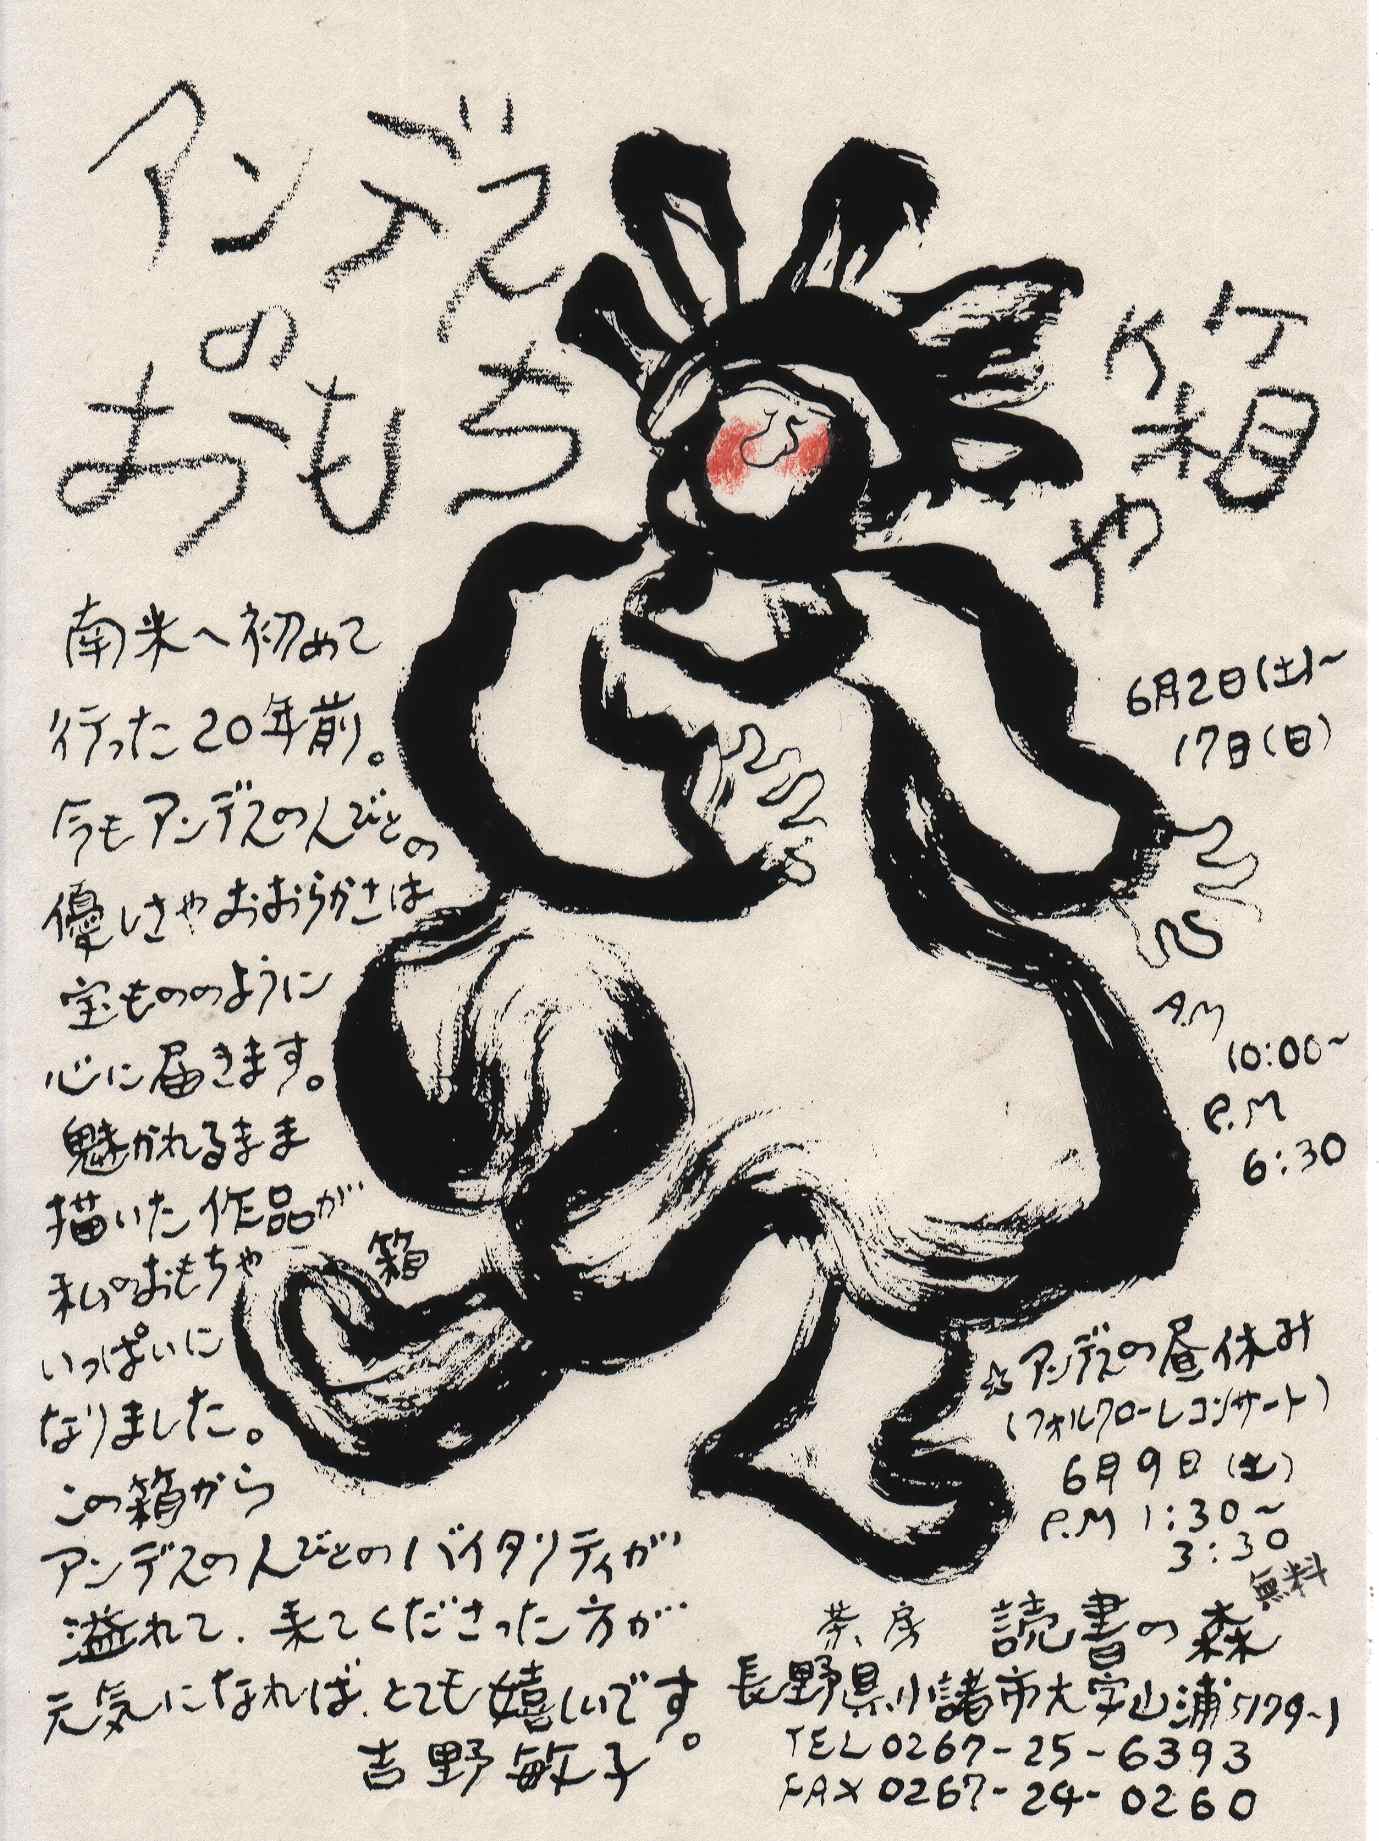 アンデス
の
おもちゃ
箱
南米へ初めて
行った20年前。
今もアンデスの人びとの
優しさやおおらかさは
宝もののように
心に届きます。
魅かれるまま
描いた作品が
私のおもちゃ箱
いっぱいに
なりました。
この箱から
アンデスの人びとのバイタリティが
溢れて、来てくださった方が
元気になれば、とても嬉しいです。
吉野敏子
6月2日(土)~
17日(日)
A.M
10:00~
P.M
6:30
☆アンデスの昼休み
(フォルクローレコンサート)
6月9日(土)
P.M 1:30~
3:30
無料
茶房 読書の森
長野県小諸市大字山浦5179-1
TEL 0267-25-6393
FAX 0267-24-0260